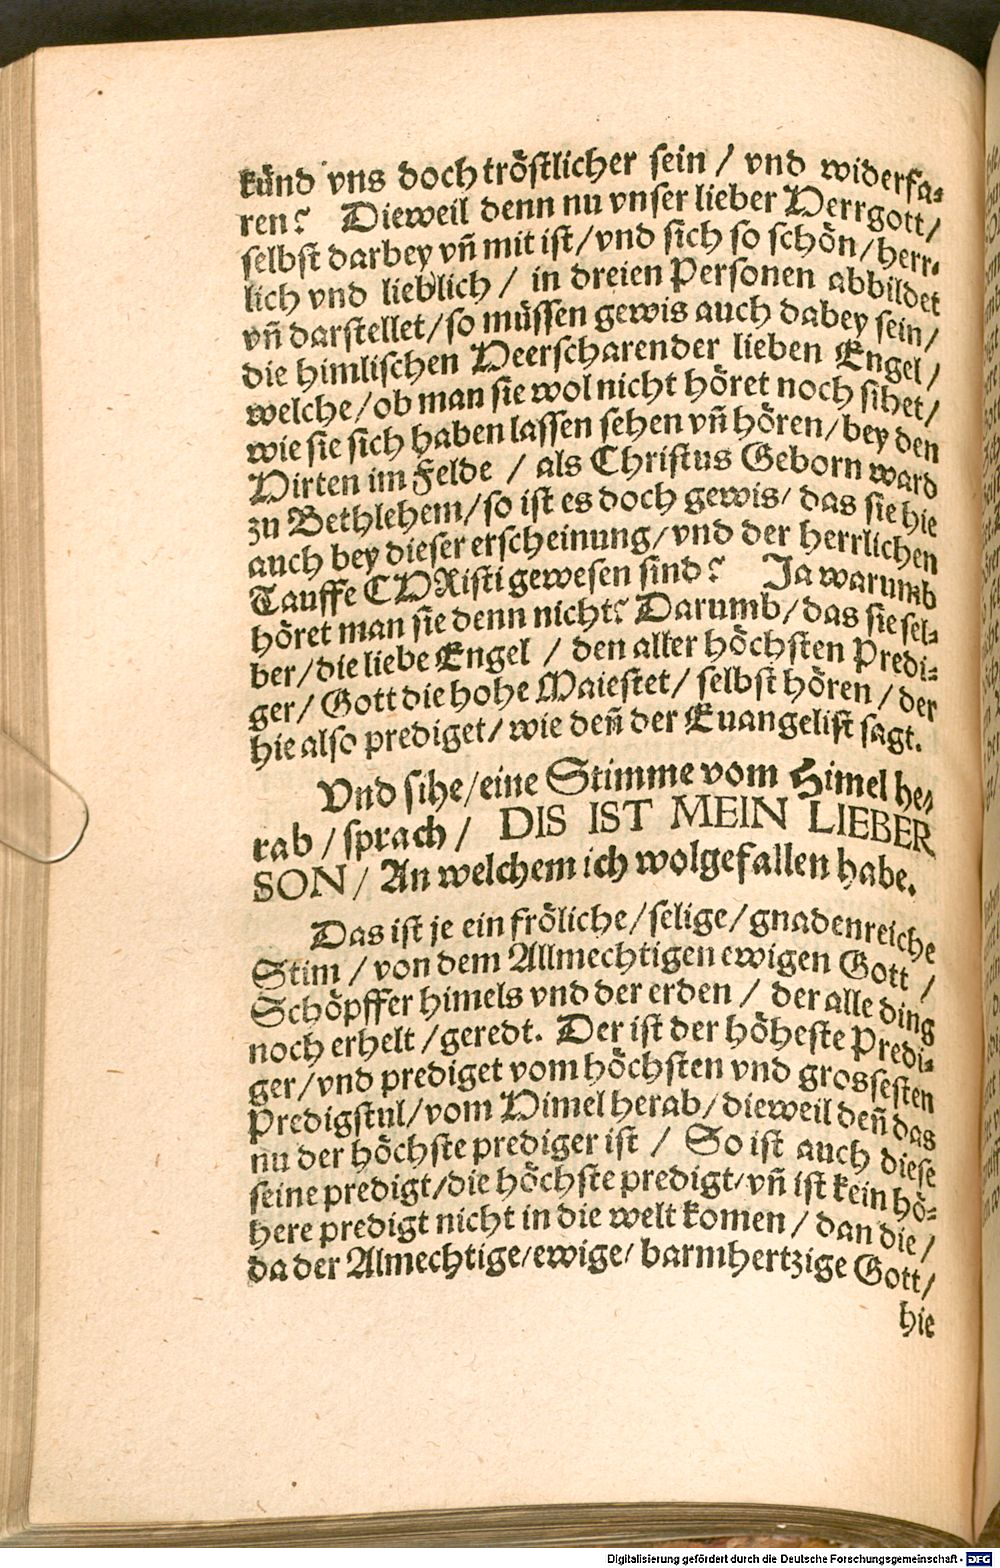 künd vns doch tröstlicher sein / vnd widerfa-
ren? Dieweil denn nu vnser lieber Herrgott /
selbst darbey vñ mit ist / vnd sich so schön / herr-
lich vnd lieblich / in dreien Personen abbildet
vñ darstellet / so müssen gewis auch dabey sein /
die himlischen Heerscharen der lieben Engel /
welche / ob man sie wol nicht höret noch sihet /
wie sie sich haben lassen sehen vñ hören / bey den
Hirten im Felde / als Christus Geborn ward
zu Bethlehem / so ist es doch gewis / das sie hie
auch bey dieser erscheinung / vnd der herrlichen
Tauffe CHRisti gewesen sind? Ja warumb
höret man sie denn nicht? Darumb / das sie sel-
ber / die liebe Engel / den aller höchsten Predi-
ger / Gott die hohe Maiestet / selbst hören / der
hie also prediget / wie deñ der Euangelist sagt.
Vnd sihe / eine Stimme vom Himel he-
rab / sprach / DIS IST MEIN LIEBER
SON / An welchem ich wolgefallen habe.
Das ist je ein fröliche / selige / gnadenreiche
Stim / von dem Allmechtigen ewigen Gott /
Schöpffer himels vnd der erden / der alle ding
noch erhelt / geredt. Der ist der höheste Predi-
ger / vnd prediget vom höchsten vnd grossesten
Predigstul / vom Himel herab / dieweil deñ das
nu der höchste prediger ist / So ist auch diese
seine predigt / die höchste predigt / vñ ist kein hö-
here predigt nicht in die welt komen / dan die /
da der Almechtige / ewige / barmhertzige Gott /
hie
Digitalisierung gefördert durch die Deutsche Forschungsgemeinschaft - DFG